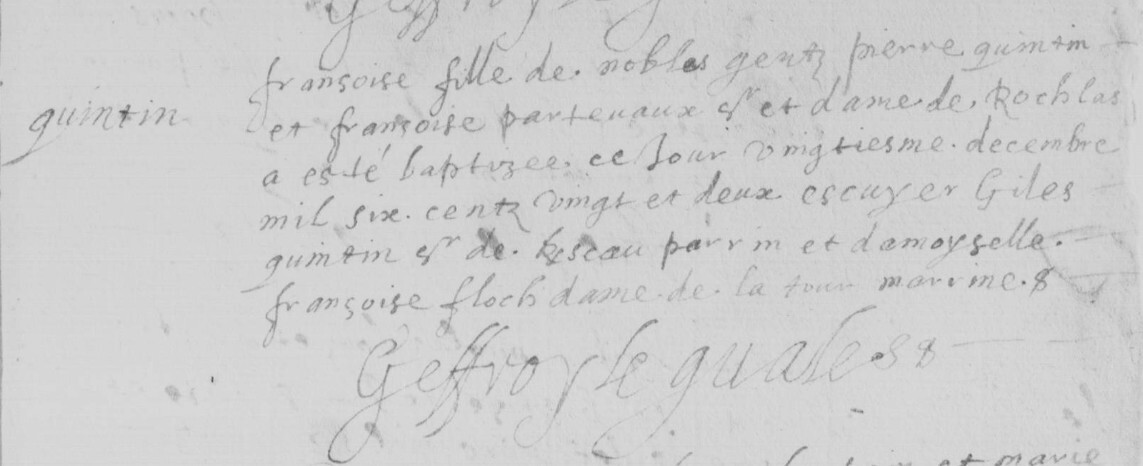 quintin
françoise fille de nobles gentz pierre quintin
et françoise partevaux sr et dame de Rochlas
a esté baptizee ce Jour vingtiesme decembre
mil six centz vingt et deux escuyer Giles
quintin sr de kscau parrin et damoyselle
françoise floch dame de la tour marrine
Geffroy le guales
et marie